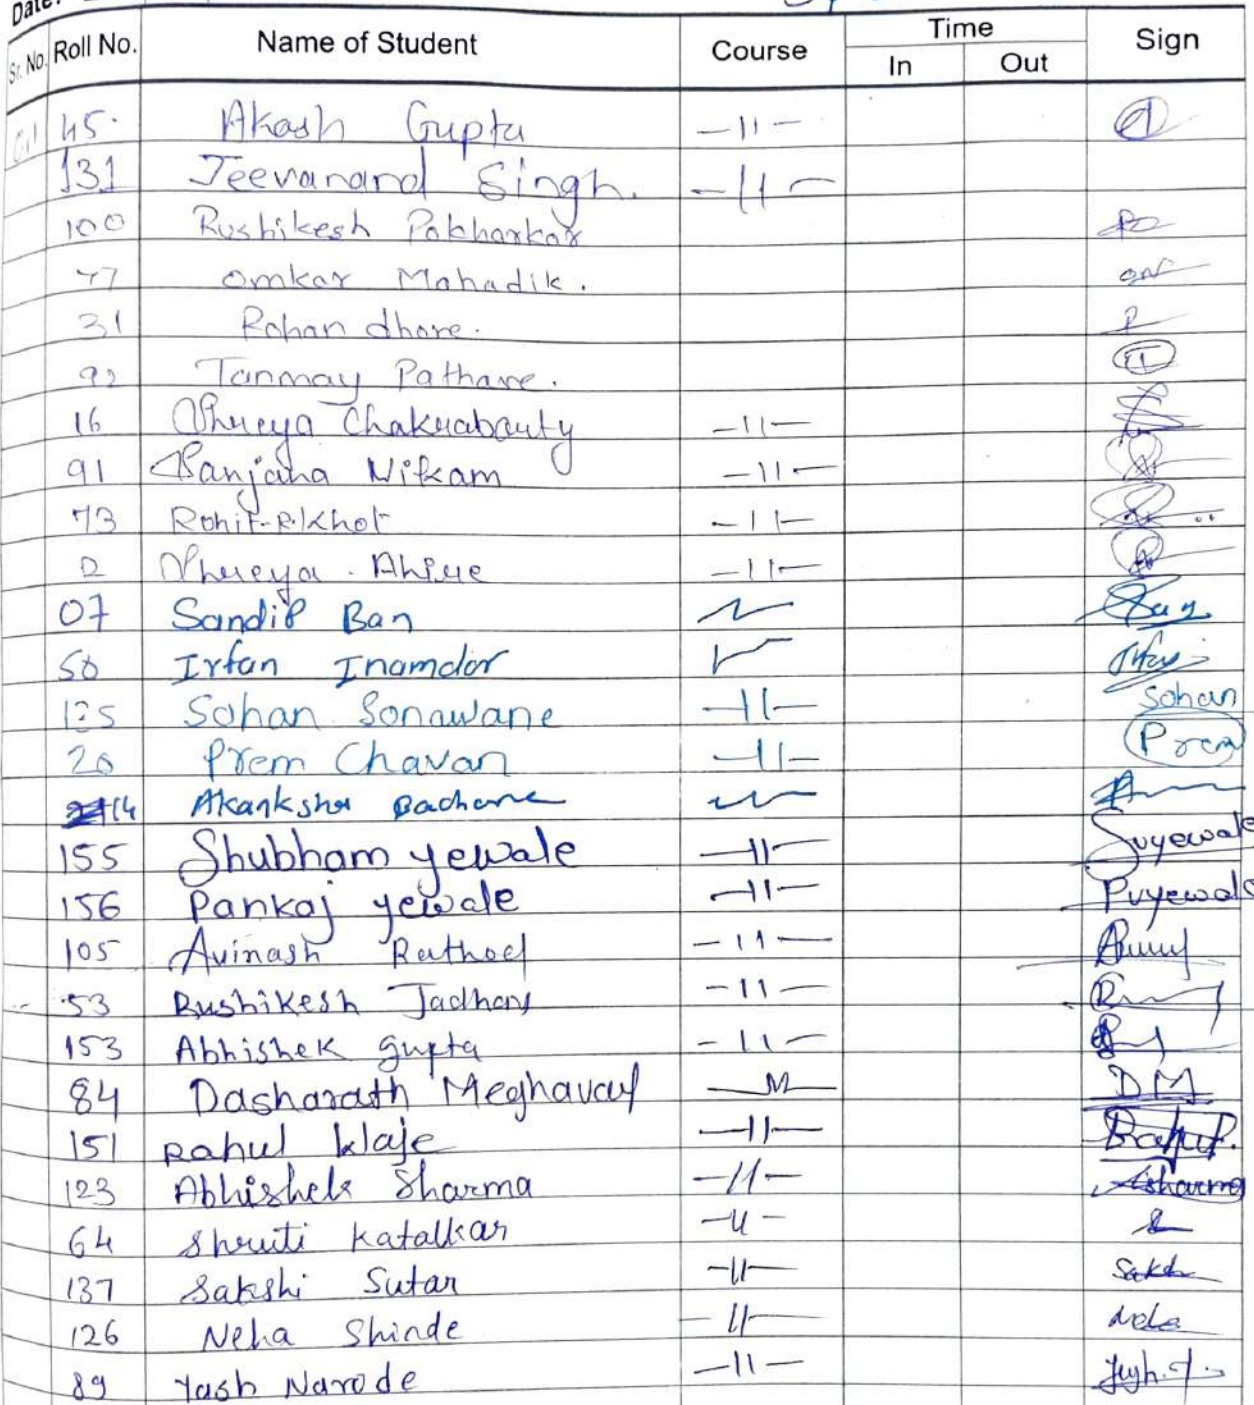 Date:
Sr. No. Roll No. Name of Student Course Time In Out Sign
45. Akash Gupta —11—
131 Jeevanand Singh. —11—
100 Rushikesh Pakharkar
77 Omkar Mahadik.
31 Rohan dhore.
92 Tanmay Pathare.
16 Shreya Chakrabarty —11—
91 Sanjana Nikam —11—
73 Rohit R. Khot —11—
2 Shreya. Ahire —11—
07 Sandip Ban
50 Irfan Inamdar
125 Sohan Sonawane —11— Sohan
20 Prem Chavan —11— Prem
14 Akanksha
155 Shubham yewale —11— Syyewale
156 Pankaj yewale —11— Pvyewale
105 Avinash Rathod —11—
53 Rushikesh Jadhav —11—
153 Abhishek gupta —11—
84 Dasharath Meghaval DM
151 Rahul klaje —11— Rahul.
123 Abhishek Sharma —11— Asharma
64 Shruti Katalkar —11—
137 Sakshi Sutar —11— Sakshi
126 Neha Shinde —11— Neha
89 Yash Narode —11—